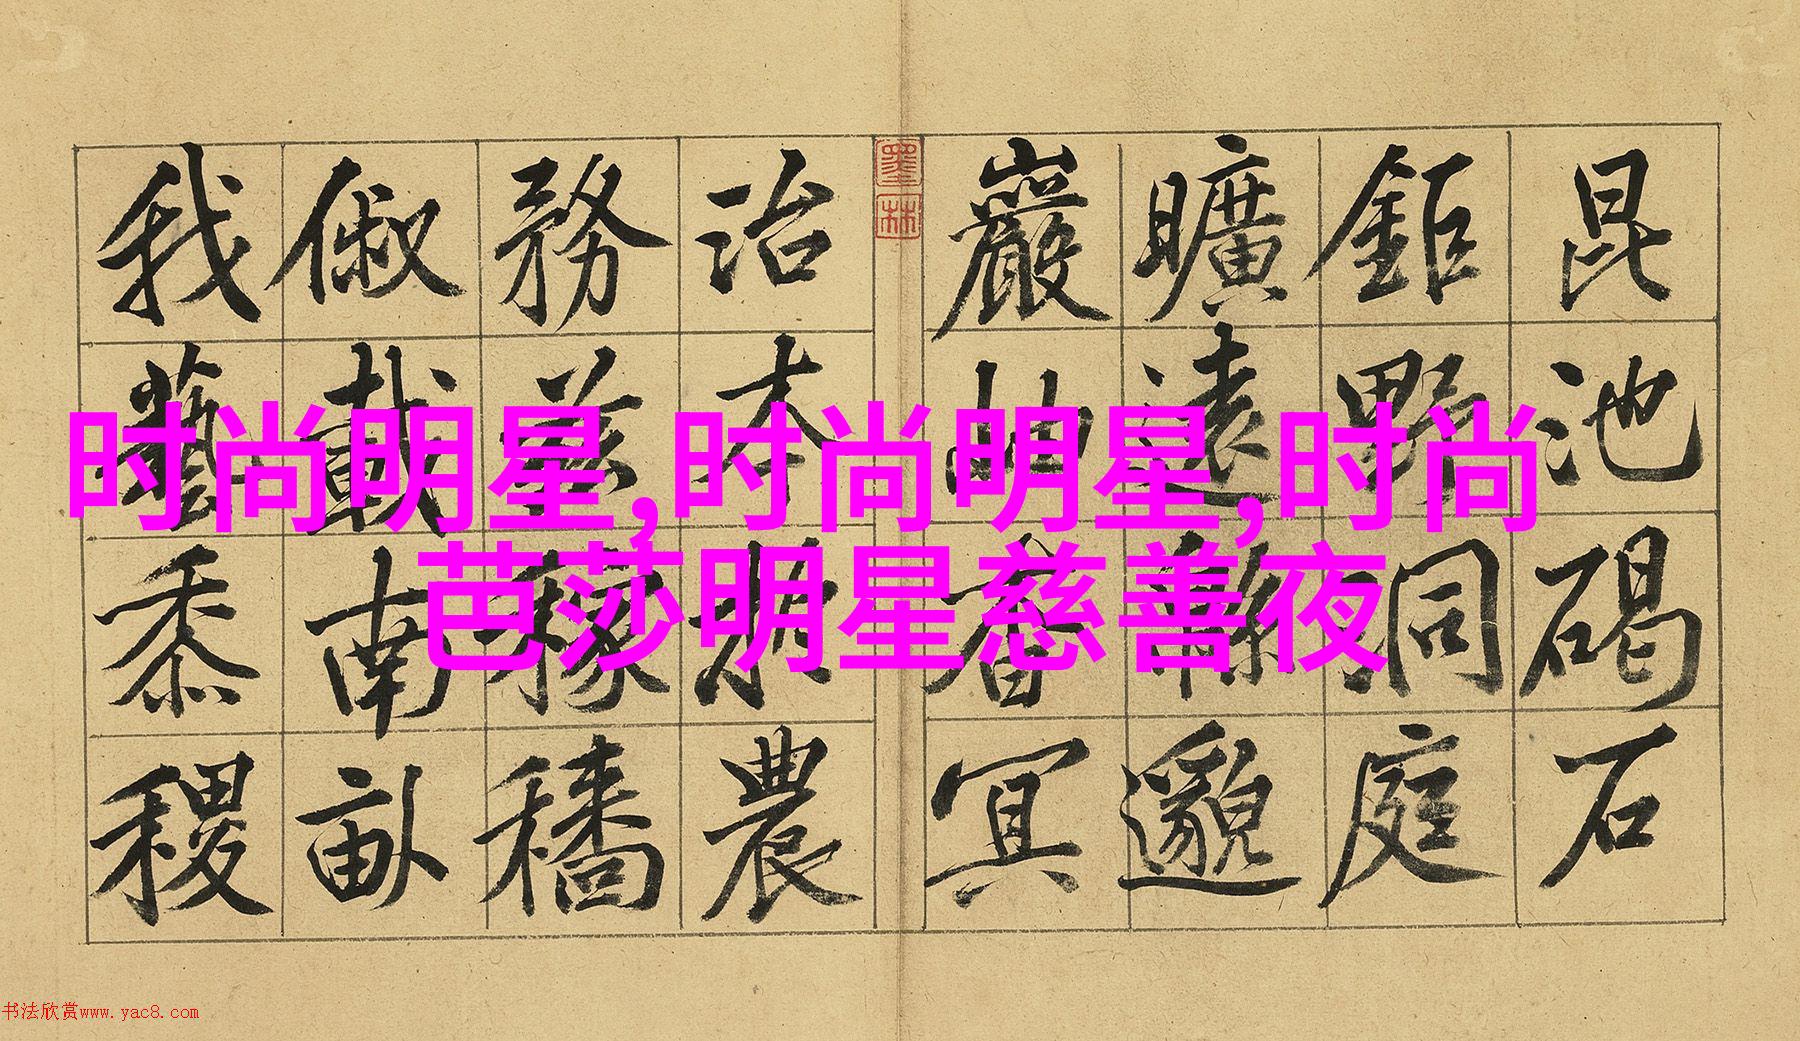 昆池碣石
鉅野洞庭
曠遠緜邈
巖岫杳冥
墨林
治本於農
務茲稼穡
俶載南畝
我藝黍稷
时尚明星,时尚明星,时尚
芭莎明星慈善夜
书法欣赏www.yac8.com